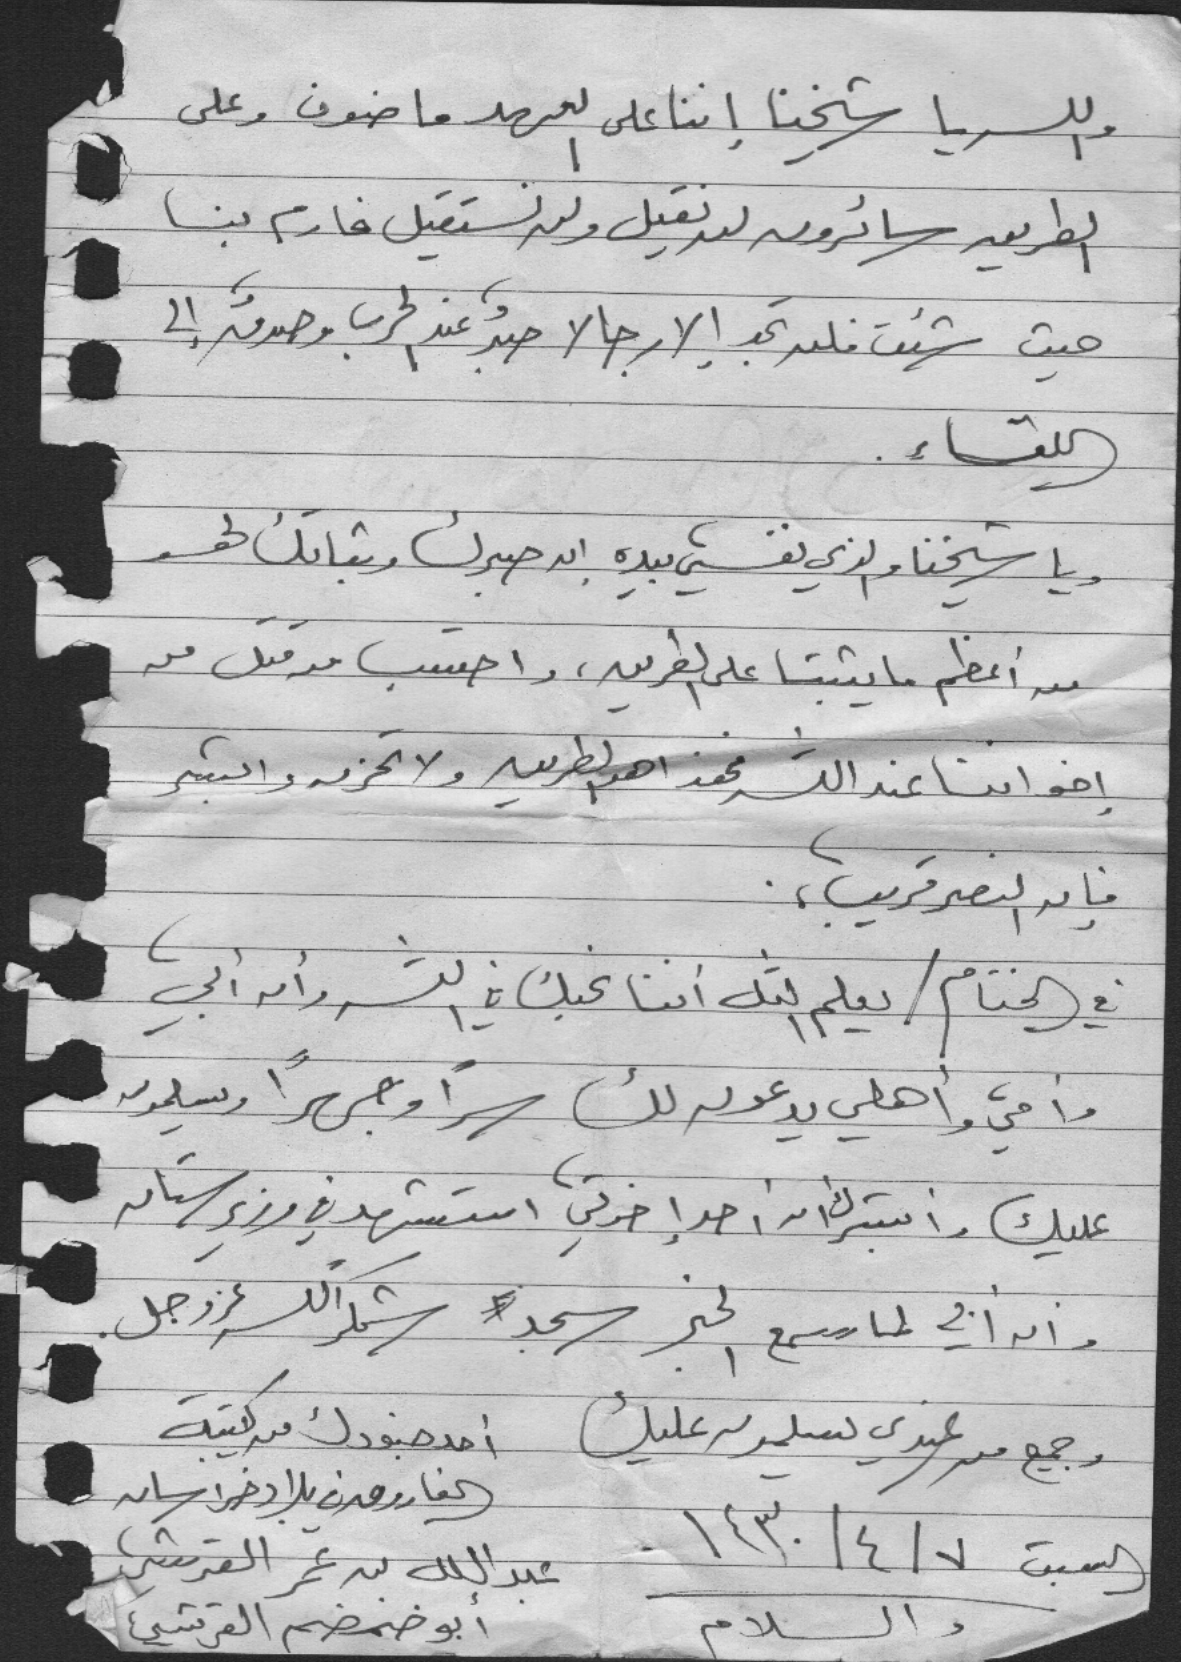 والله يا شيخنا إننا على العهد ماضون وعلى
الطريق سائرون لن نقيل ولن نستقيل فارم بنا
حيث شئت فلن تجد إلا رجالا صبرٌ عند الحرب وصدقٌ إلى
اللقاء.
ويا شيخنا والذي نفسي بيده إن صبرك وثباتك لهو
من أعظم ما يثبتنا على الطريق، واحتسب من قتل من
إخواننا عند الله فهذا هو الطريق ولا تحزن وابشر
فإن النصر قريب،.
في الختام / يعلم الله أننا نحبك في الله وأن أبي
وأمي وأهلي يدعون لك سرًا وجهرًا ويسلمون
عليك وأبشرك أن أحد إخوتي استشهد في وزيرستان
وأن أبي لما سمع الخبر سجد شكرًا لله عز وجل.
وجميع من عندي يسلمون عليك
السبت ٧/٤/١٤٣٠.
والسلام
أحد جنودك من كتيبة
الفاروق في بلاد خراسان
عبدالله بن عمر القرشي
أبو ضمضم القرشي